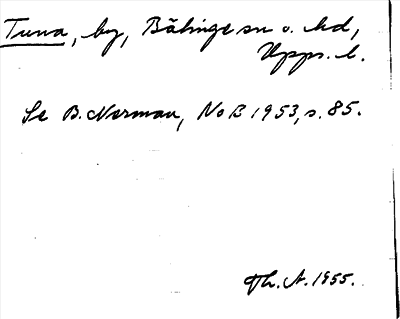 Tuna, by, Bälinge sn o. hd,
Upps. l.
Se B. Norman, NoB 1953, s. 85.
Th. A. 1955.